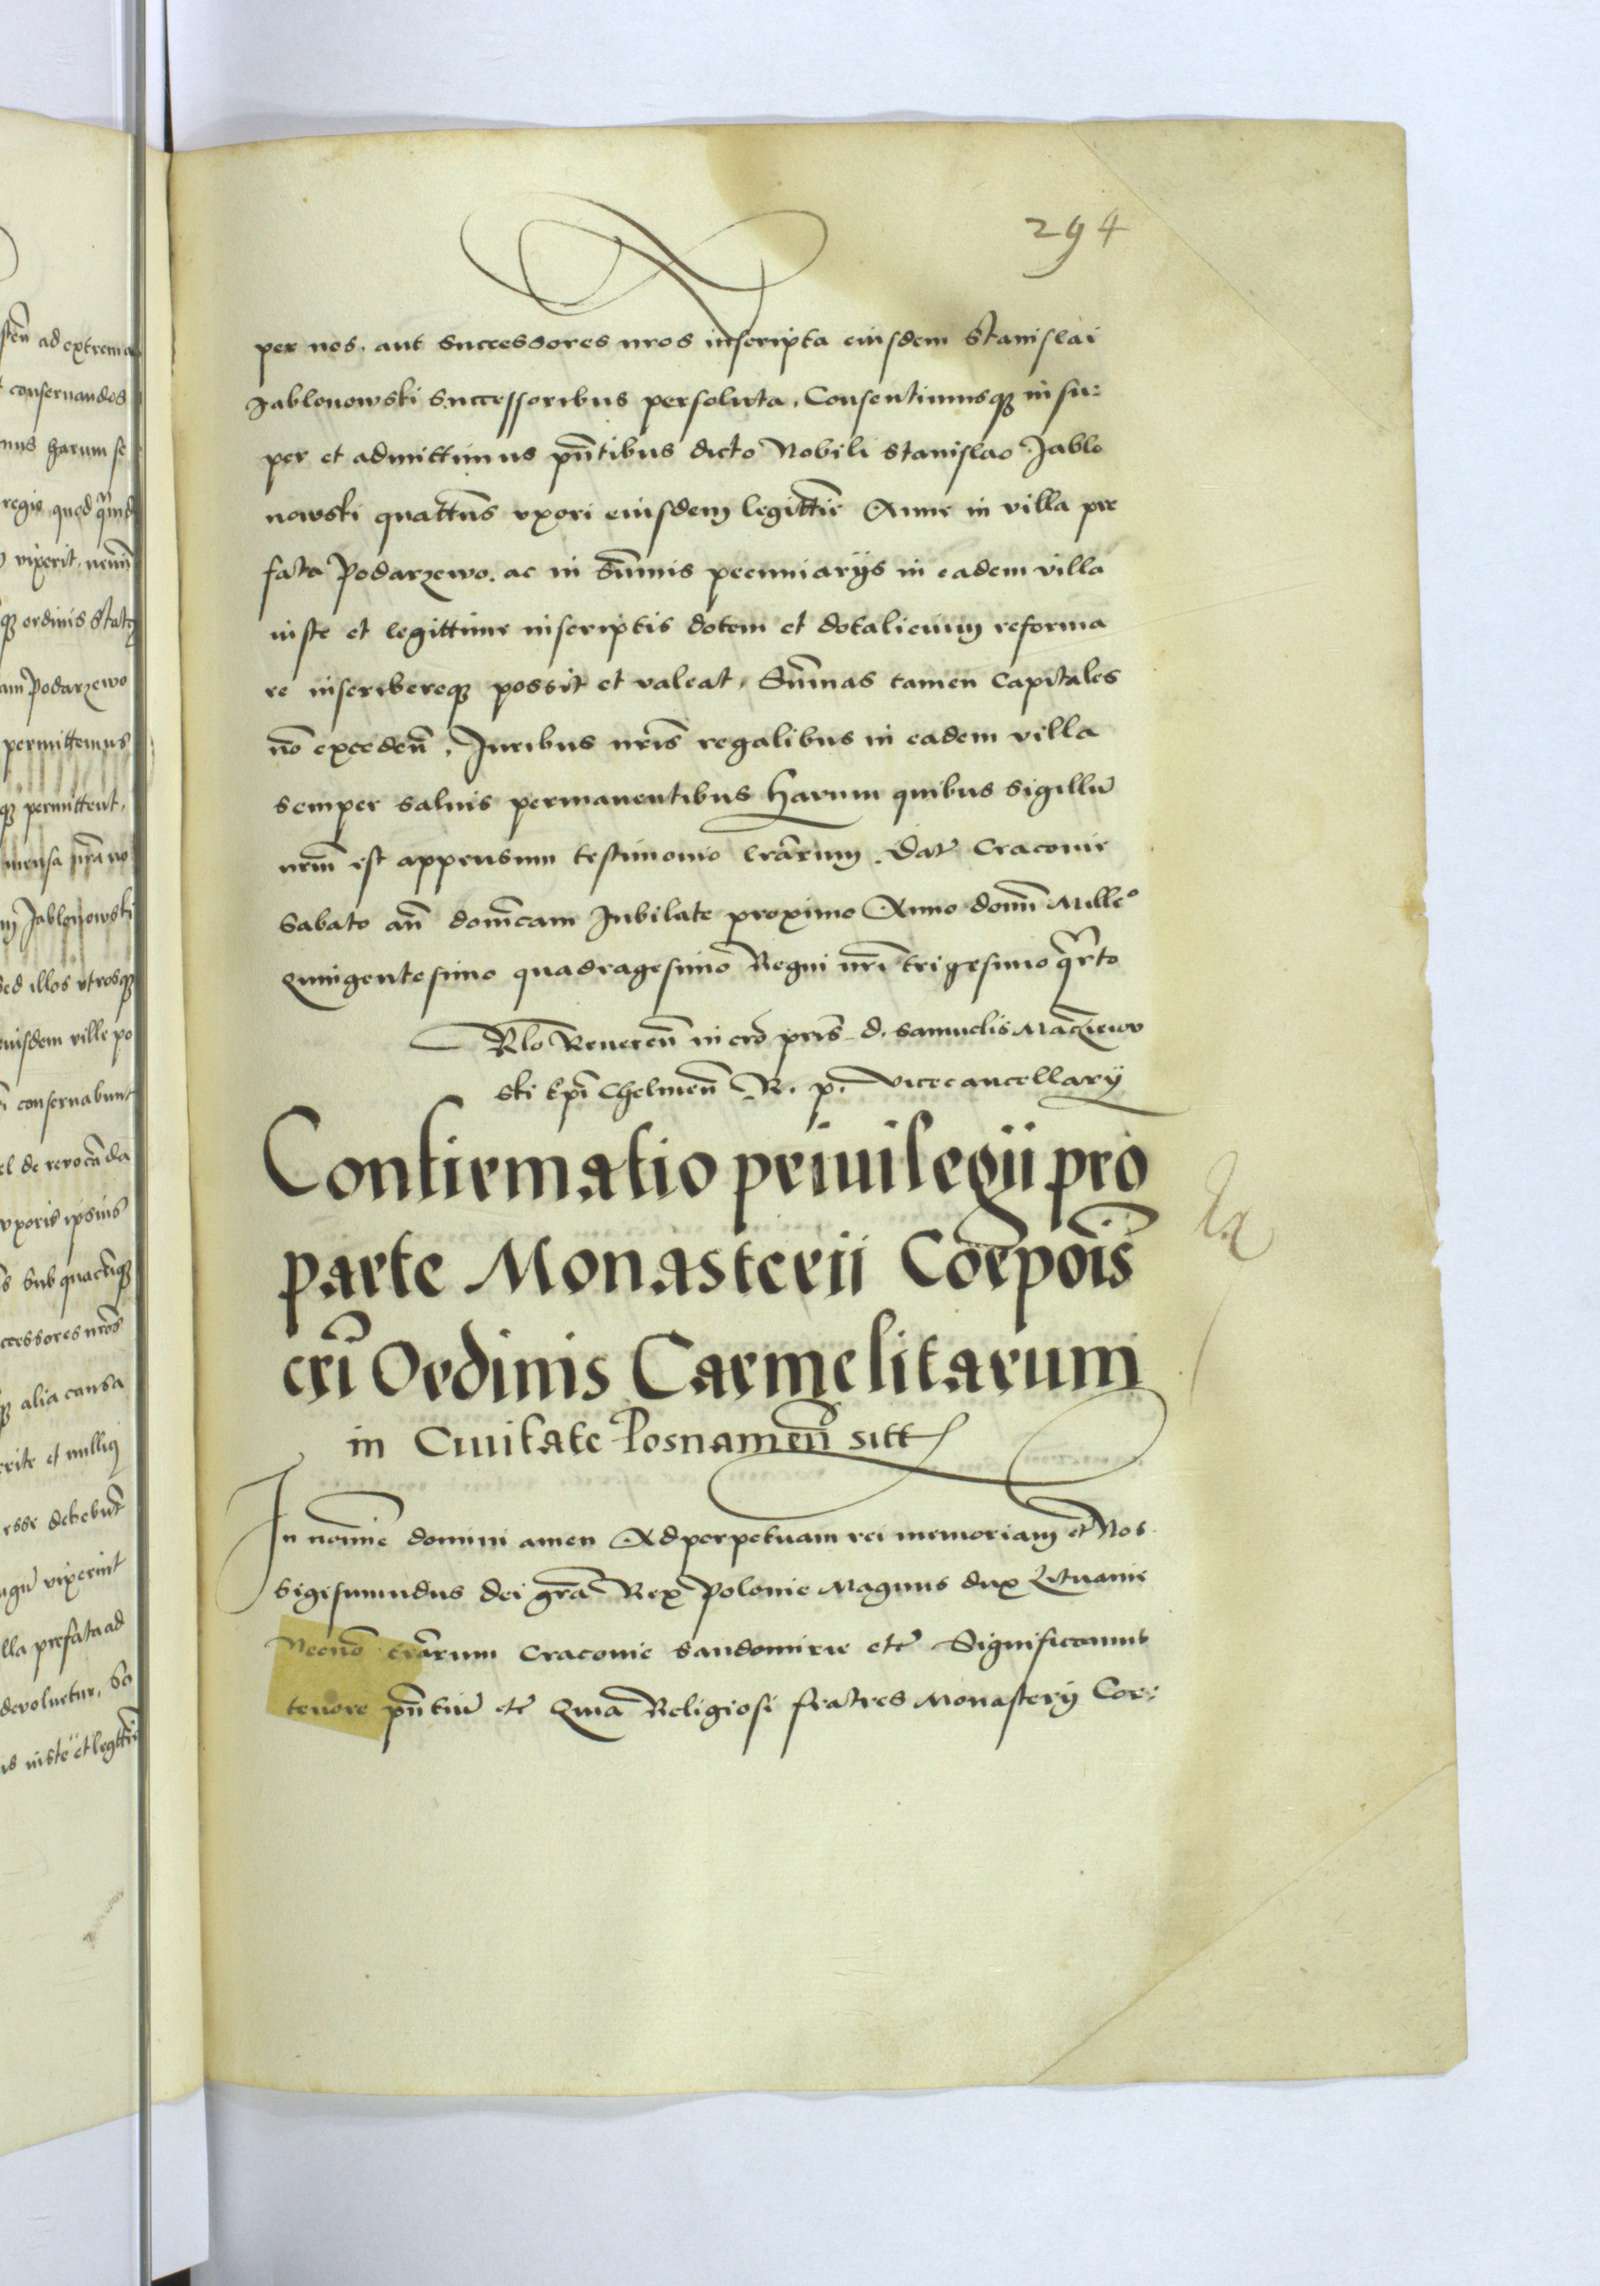 294
per nos. aut successores nros inscripta eiusdem Stanislai
Jablonowski successoribus persoluta. Consentimusq3 insu:
per et admittimus pñtibus dicto Nobili Stanislao Jablo
nowski quatt͠s vxori eiusdem legittie͠ Anne in villa pre
fata Podarzewo. ac in Sum̃is pecuniarijs in eadem villa
iuste et legittime inscriptis dotem et dotalicium reforma
re inscribereq3 possit et valeat. Sum̃as tamen capitales
nõ excedeñ. Juribus nris̃ regalibus in eadem villa
semper saluis permanentibus harum quibus sigillũ
nrm̃ est appensum testimonio lrãrum. Dat̃ Cracouie
Sabato añ domc̃am Jubilate proximo Anno domĩ Mille°
Quingentesimo quadragesimo Regni nrĩ trigesimo qrt̃o
Rlõ Reuereñ in cro̊ pris̃ d. Samuelis Macziewo
ski Epĩ Chelmeñ R. p. vicecancellarij
Confirmatio priuilegii pro
parte Monasterii Corpois̃
cri̊ Ordinis Carmelitarum
in Ciuitate Posnameñ sitt
In nomie͠ domini amen Ad perpetuam rei memoriam et̃ Nos
Sigismundus dei grã Rex Polonie Magnus dux Lituanie
Necnõ trãrum Cracouie Sandomirie etc̃ Significamus
tenore pñtiũ etc̃ Quia Religiosi fratres Monasterij Cor:
steñ ad extrema
conseruandos
mus harum se
regie quod
vixerit. nemĩ
q3 ordinis
am Podarzewo
permittemus
q3 permittent.
mensa nrã
Jablonowski
sed illos vtrosq3
eiusdem ville po
conseruabunt
el de reuocãda
vxoris ipsius
s sub quacũq3
ccessores nros
alia causa
rite et nulliq
esse debebũt
vixerint
lla prefata ad
deuoluetur.
is iuste et legttĩe